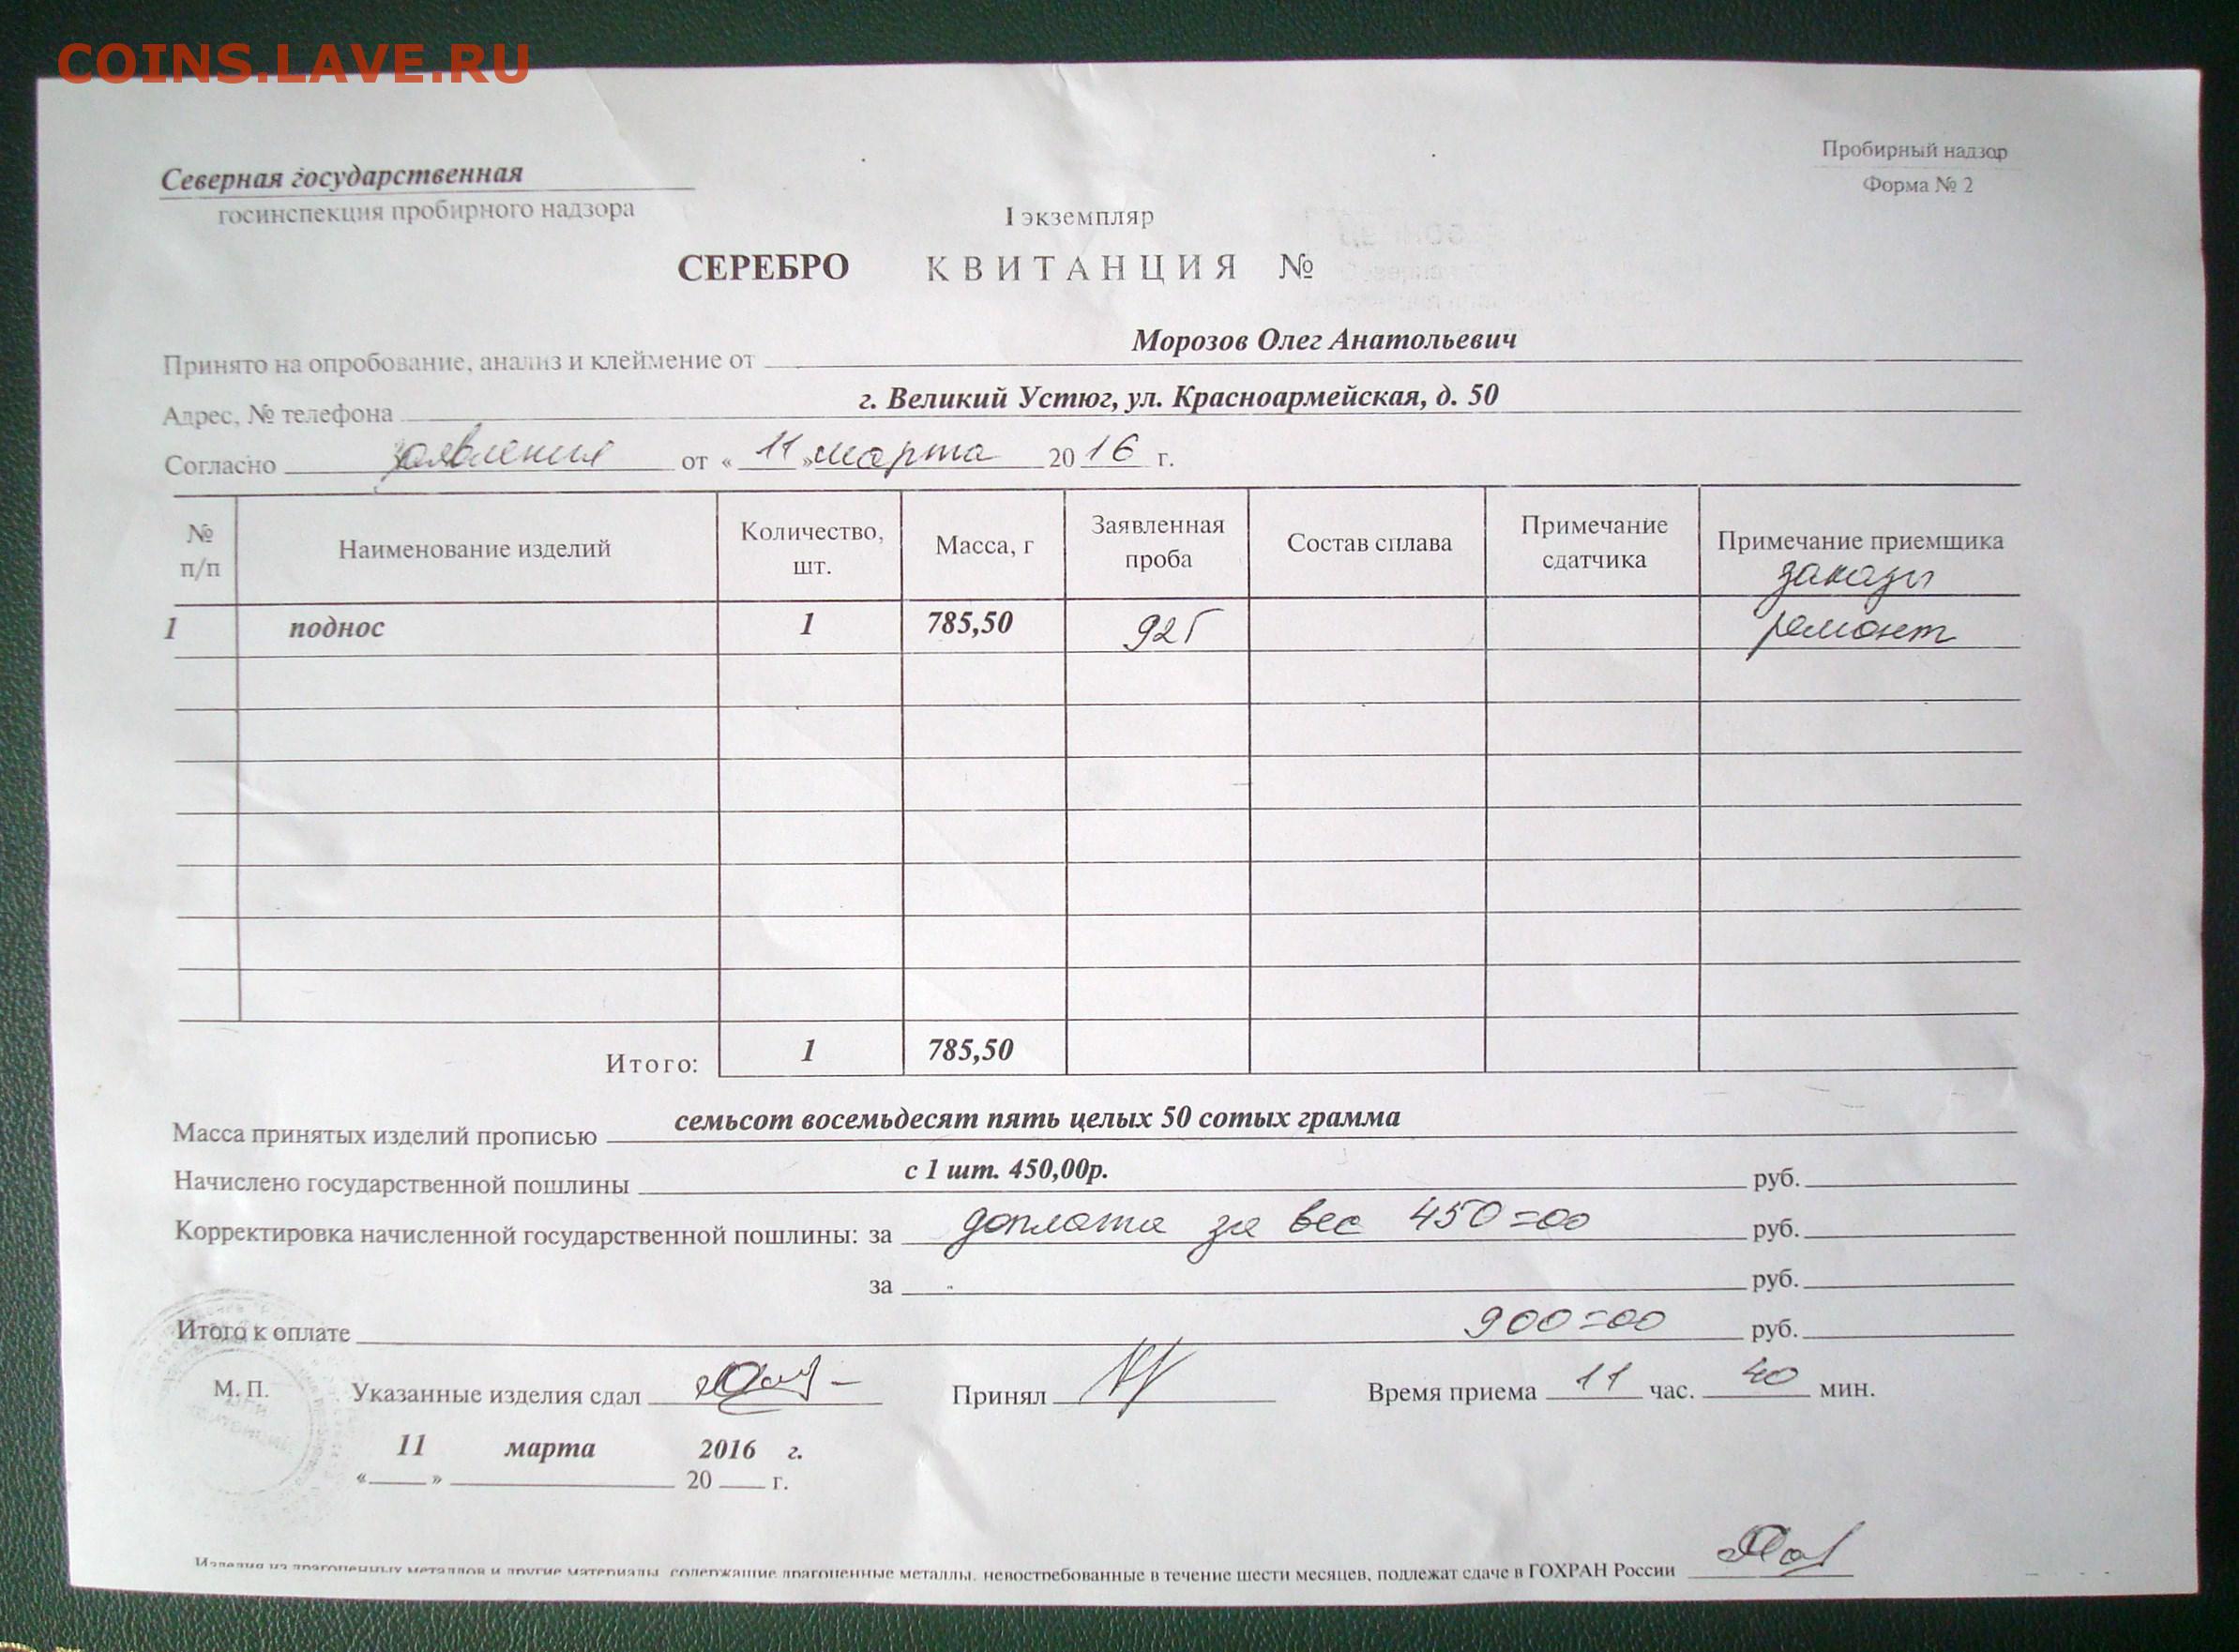 COINS.LAVE.RU
Пробирный надзор
Форма № 2
Северная государственная
госинспекция пробирного надзора
I экземпляр
СЕРЕБРО КВИТАНЦИЯ №
Принято на опробование, анализ и клеймение от Морозов Олег Анатольевич
Адрес, № телефона г. Великий Устюг, ул. Красноармейская, д. 50
Согласно заявления от « 11 » марта 2016 г.
№ п/п Наименование изделий Количество, шт. Масса, г Заявленная проба Состав сплава Примечание сдатчика Примечание приемщика
заказы
1 поднос 1 785,50 925 ремонт
Итого: 1 785,50
Масса принятых изделий прописью семьсот восемьдесят пять целых 50 сотых грамма
Начислено государственной пошлины с 1 шт. 450,00р. руб.
Корректировка начисленной государственной пошлины: за доплата за вес 450=00 руб.
за руб.
Итого к оплате 900=00 руб.
М. П. Указанные изделия сдал Принял Время приема 11 час. 40 мин.
11 марта 2016 г.
« » 20 г.
Изделия из драгоценных металлов и другие материалы, содержащие драгоценные металлы, невостребованные в течение шести месяцев, подлежат сдаче в ГОХРАН России